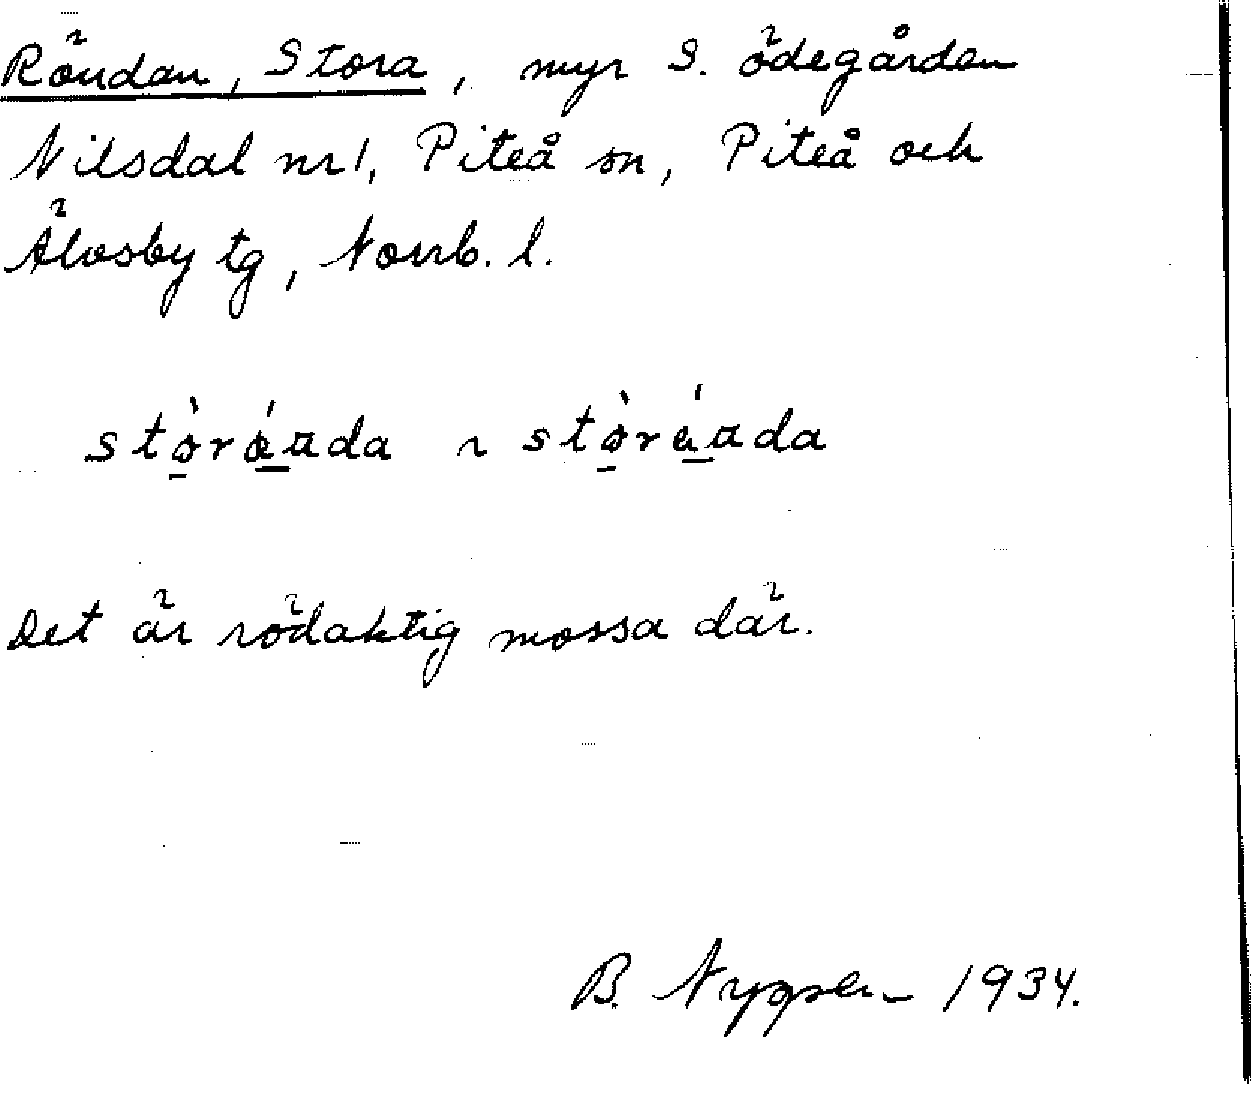 Röudan, Stora, myr S. ödegården
Nilsdal nr 1, Piteå sn, Piteå och
Älvsby tg, Norrb. l.
Det är rödaktig mossa där.
B. 1934.